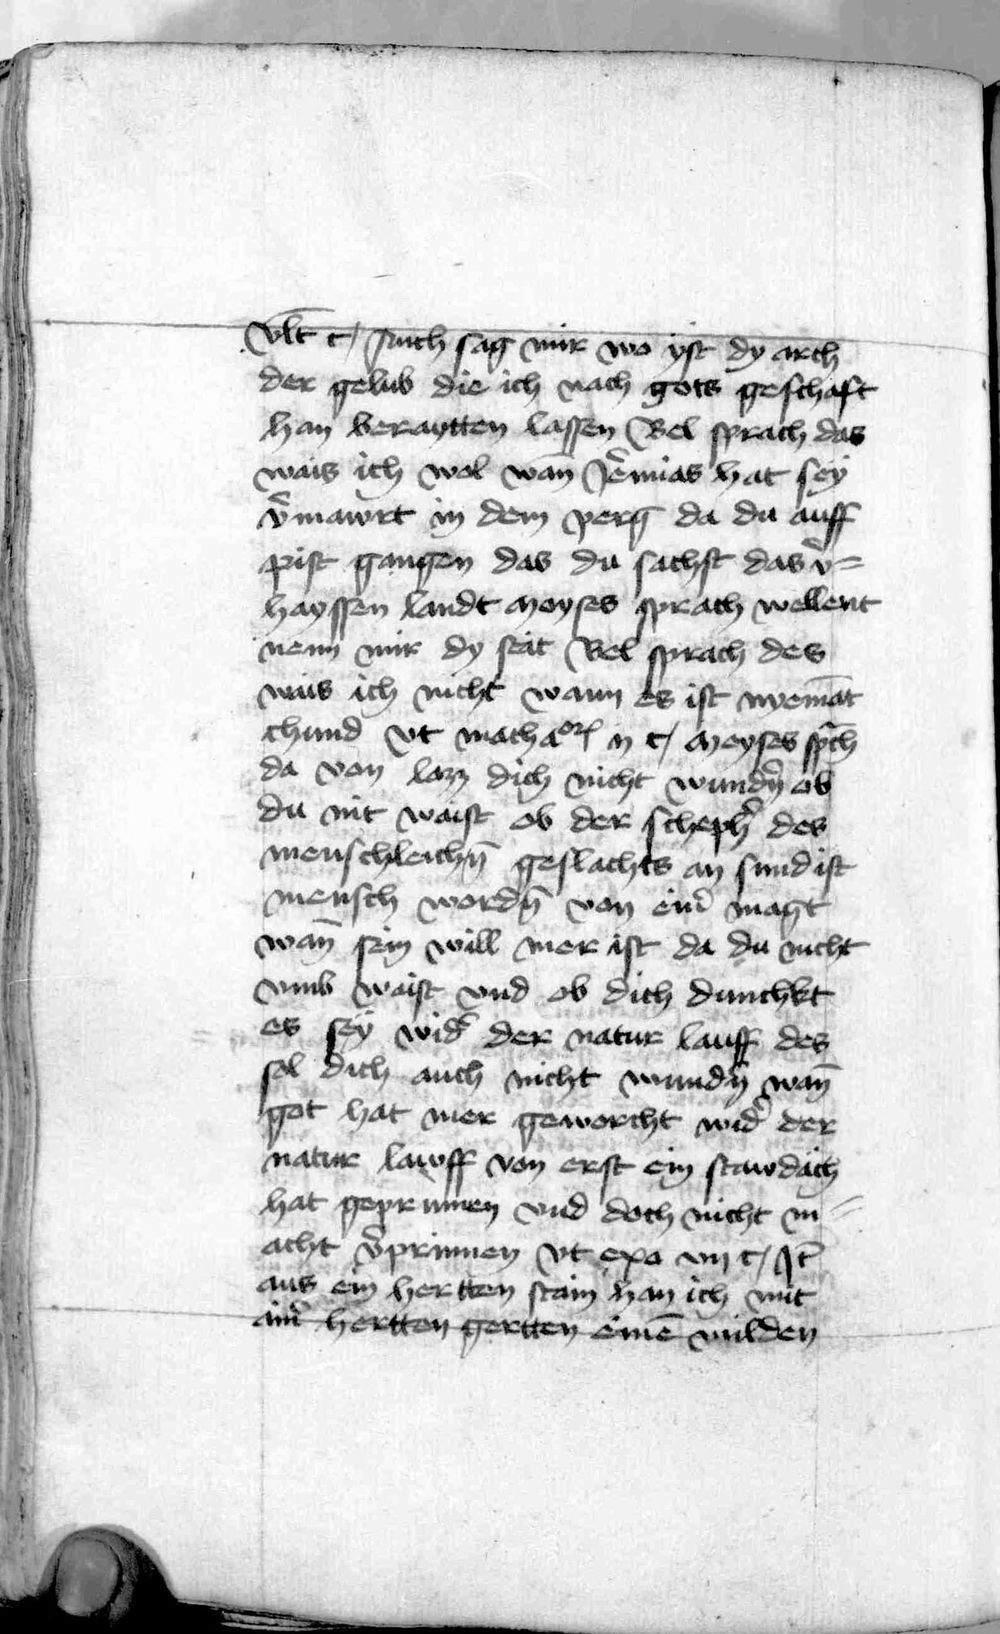 vlt c / Auch sag mir wo yst dy arch
der gelub die ich nach gots geschaft
han beraytten lassen Bel sprach das
wais ich wol wan̄ Jẽmias hat seÿ
v̾mawrt in dem perg da du auff
pist gangen das du sachst das v̾=
hayssen landt Moyses sprach wellent
nenn mir dy stat Bel sprach des
wais ich nicht wann es ist nyemāt
chund vt machaor͛ ij c / Moyses sp̄ch
da von lazz dich nicht wundn̄ ob
du nit waist ob der scheph̾ des
menschleichn̄ geslachts an sund ist
mensch wordn̄ von ein̾ magt
wan̄ sein will mer ist da du nicht
vmb waist vnd ob dich dunchkt
es seÿ wid̾ der natur lauff des
sol dich auch nicht wundn̄ wan̄
got hat mer geworcht wid̾ der
natur lawff von erst ein stawdach
hat geprunnen vnd doch nicht m=
acht v̾prinnen vt exo iij c / Jt̄
aus ein hertten stain han ich mit
ain̾ hertten gertten einē milden